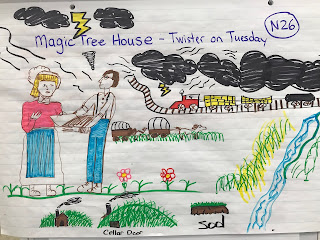 N26
Magic Tree House - Twister on Tuesday
Cellar Door
sod